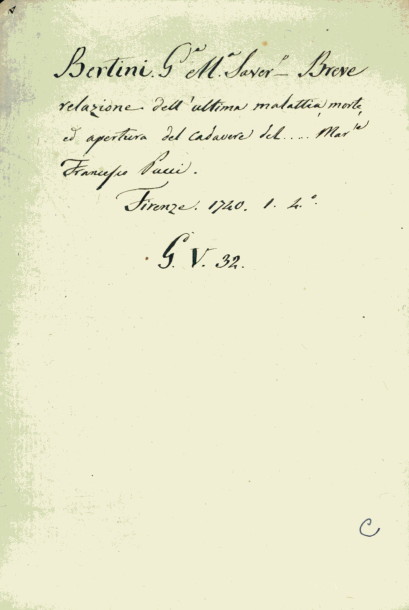 Bertini. Gᵃ Mᵃ Saverº– Breve
relazione dell'ultima malattia, morte,
ed apertura del cadavere del.... Marˢᵉ
Francesco Pucci.
Firenze. 1740. 1. 4º.
G. V. 32.
C